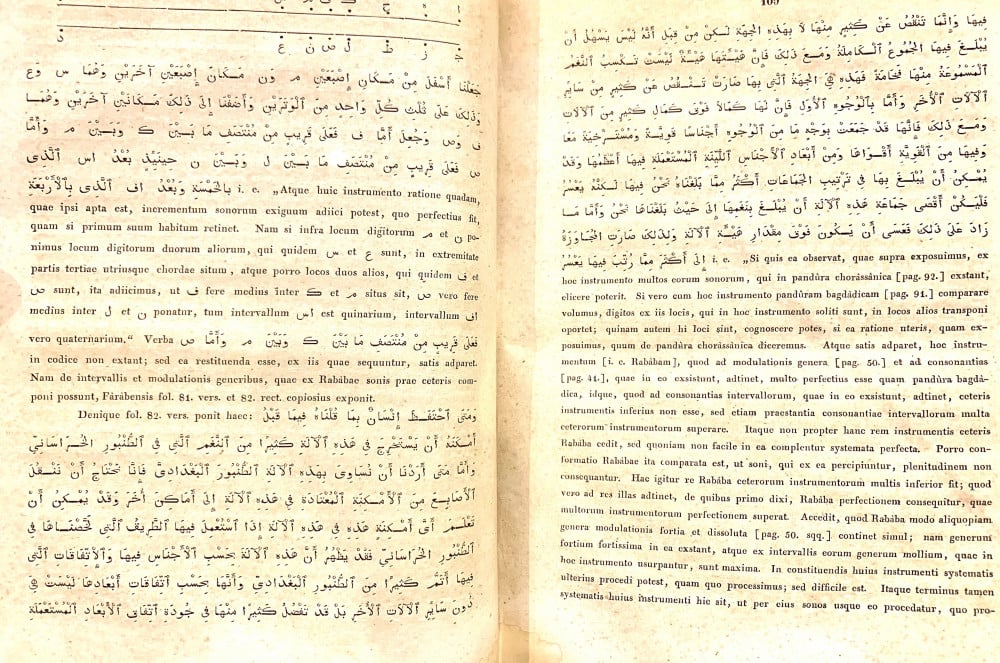 جعلنا أسفل من مكان إصبعين م ون مكان إصبعين آخرين وهما س وع
وذلك على ثلث كل واحد من الوترين وأضفنا إلى ذلك مكانين آخرين وهما
ف وص وجعل أما ف فعلى قريب من منتصف ما بين ك وبين م وأما
ص فعلى قريب من منتصف ما بين ل وبين ن حينيذ بعد اس الذى
بالخمسة وبعد اف الذى بالأربعة i. e. „Atque huic instrumento ratione quadam,
quae ipsi apta est, incrementum sonorum exiguum adiici potest, quo perfectius fit,
quam si primum suum habitum retinet. Nam si infra locum digitorum م et ن po-
nimus locum digitorum duorum aliorum, qui quidem س et ع sunt, in extremitate
partis tertiae utriusque chordae situm, atque porro locos duos alios, qui quidem ف et
ص sunt, ita adiicimus, ut ف fere medius inter ك et م situs sit, ص vero fere
medius inter ل et ن ponatur, tum intervallum اس est quinarium, intervallum اف
vero quaternarium.“ Verba فعلى قريب من منتصف ما بين ك وبين م وأما ص
in codice non extant; sed ea restituenda esse, ex iis quae sequuntur, satis adparet.
Nam de intervallis et modulationis generibus, quae ex Rabábae sonis prae ceteris com-
poni possunt, Fárábensis fol. 81. vers. et 82. rect. copiosius exponit.
Denique fol. 82. vers. ponit haec: ومتى احتفظ إنسان بما قلناه فيما قبل
أمكنه أن يستخرج فى هذه الآلة كثيرا من النغم التى فى الطنبور الخراسانى
وأما متى أردنا أن نساوى بهذه الآلة الطنبور البغدادى فإنا نحتاج أن ننقل
الأصابع من الأمكنة المعتادة فى هذه الآلة إلى أماكن أخر وقد يمكن أن
تعلم أى أمكنة هذه فى هذه الآلة إذا استعمل فيها الطريف التى لخصناها فى
الطنبور الخراسانى فقد يظهر أن هذه الآلة بحسب الأجناس فيها والاتفاقات التى
فيها أتم كثيرا من الطنبور البغدادى وأنها بحسب اتفاقات أبعادها ليست هى
دون ساير الآلات الأخر بل قد تفضل كثيرا منها فى جودة اتفاق الأبعاد المستعملة
109
فيها وإنما تنقص عن كثير منها لا بهذه الجهة لكن من قبل أنه ليس يسهل أن
يبلغ فيها الجموع الكاملة ومع ذلك فإن هيئتها هيئة ليست تكسب النغم
المسموعة منها فخامة فهذه هى الجهة التى بها صارت تنقص عن كثير من ساير
الآلات الأخر وأما بالوجوه الأول فإن لها كمالا فوق كمال كثير من الآلات
ومع ذلك فإنها قد جمعت بوجه ما من الوجوه أجناسا قوية ومسترخية معا
وفيها من القوية أقواها ومن أبعاد الأجناس اللينة المستعملة فيها أعظمها وقد
يمكن أن يبلغ بها فى ترتيب الجماعات أكثر مما بلغناه نحن فيها لكنه يعسر
فليكن أقصى جماعة هذه الآلة أن يبلغ بنغمها إلى حيث بلغناها نحن وأما ما
زاد على ذلك فعسى أن يكون فوق مقدار هيئة الآلة ولذلك صارت المجاوزة
إلى أكثر مما رتب فيها يعسر i. e. „Si quis ea observat, quae supra exposuimus, ex
hoc instrumento multos eorum sonorum, qui in pandúra chorásánica [pag. 92.] exstant,
elicere poterit. Si vero cum hoc instrumento pandúram bagdádicam [pag. 91.] comparare
volumus, digitos ex iis locis, qui in hoc instrumento soliti sunt, in locos alios transponi
oportet; quinam autem hi loci sint, cognoscere potes, si ea ratione uteris, quam ex-
posuimus, quum de pandúra chorásánica diceremus. Atque satis adparet, hoc instru-
mentum [i. e. Rabábam], quod ad modulationis genera [pag. 50.] et ad consonantias
[pag. 41.], quae in eo exsistunt, adtinet, multo perfectius esse quam pandúra bagdá-
dica, idque, quod ad consonantias intervallorum, quae in eo exsistunt, adtinet, ceteris
instrumentis inferius non esse, sed etiam praestantia consonantiae intervallorum multa
ceterorum instrumentorum superare. Itaque non propter hanc rem instrumentis ceteris
Rabába cedit, sed quoniam non facile in ea complentur systemata perfecta. Porro con-
formatio Rabábae ita comparata est, ut soni, qui ex ea percipiuntur, plenitudinem non
consequantur. Hac igitur re Rabába ceterorum instrumentorum multis inferior fit; quod
vero ad res illas adtinet, de quibus primo dixi, Rabába perfectionem consequitur, quae
multorum instrumentorum perfectionem superat. Accedit, quod Rabába modo aliquopiam
genera modulationis fortia et dissoluta [pag. 50. sqq.] continet simul; nam generum
fortium fortissima in ea exstant, atque ex intervallis eorum generum mollium, quae in
hoc instrumento usurpantur, sunt maxima. In constituendis huius instrumenti systematis
ulterius procedi potest, quam quo processimus; sed difficile est. Itaque terminus tamen
systematis huius instrumenti hic sit, ut per eius sonos usque eo procedatur, quo pro-